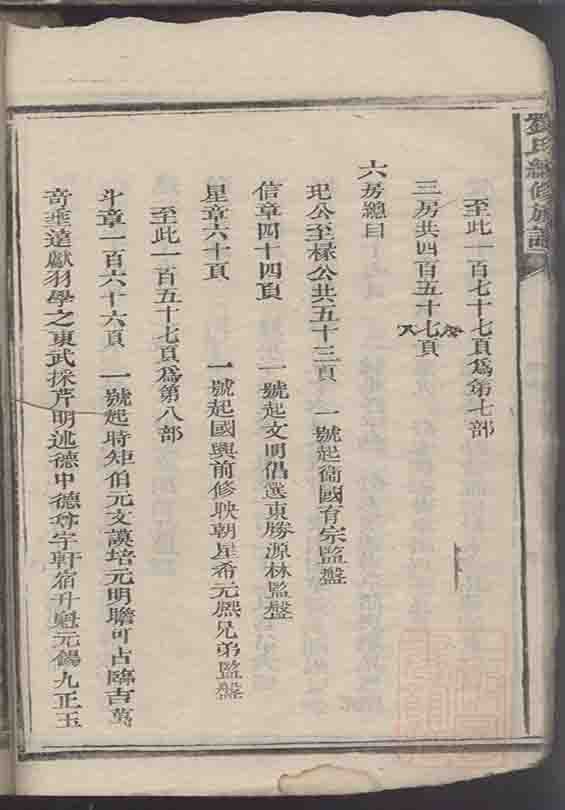 劉氏續修族譜
至此一百七十七頁爲第七部
三房共四百五十七頁
六房總目
玘公至樑公共五十三頁 一號起衞國育宗監盤
信章四十四頁 一號起文明倡選東勝源林監盤
星章六十頁 一號起國興前修映朝星希元熙兄弟監盤
至此一百五十七頁爲第八部
斗章一百六十六頁 一號起時矩伯元文謨培元明瞻可占臨吉萬
奇垂遠獻羽學之東武採芹明述德中德尊字軒宿升魁元錫九正玉